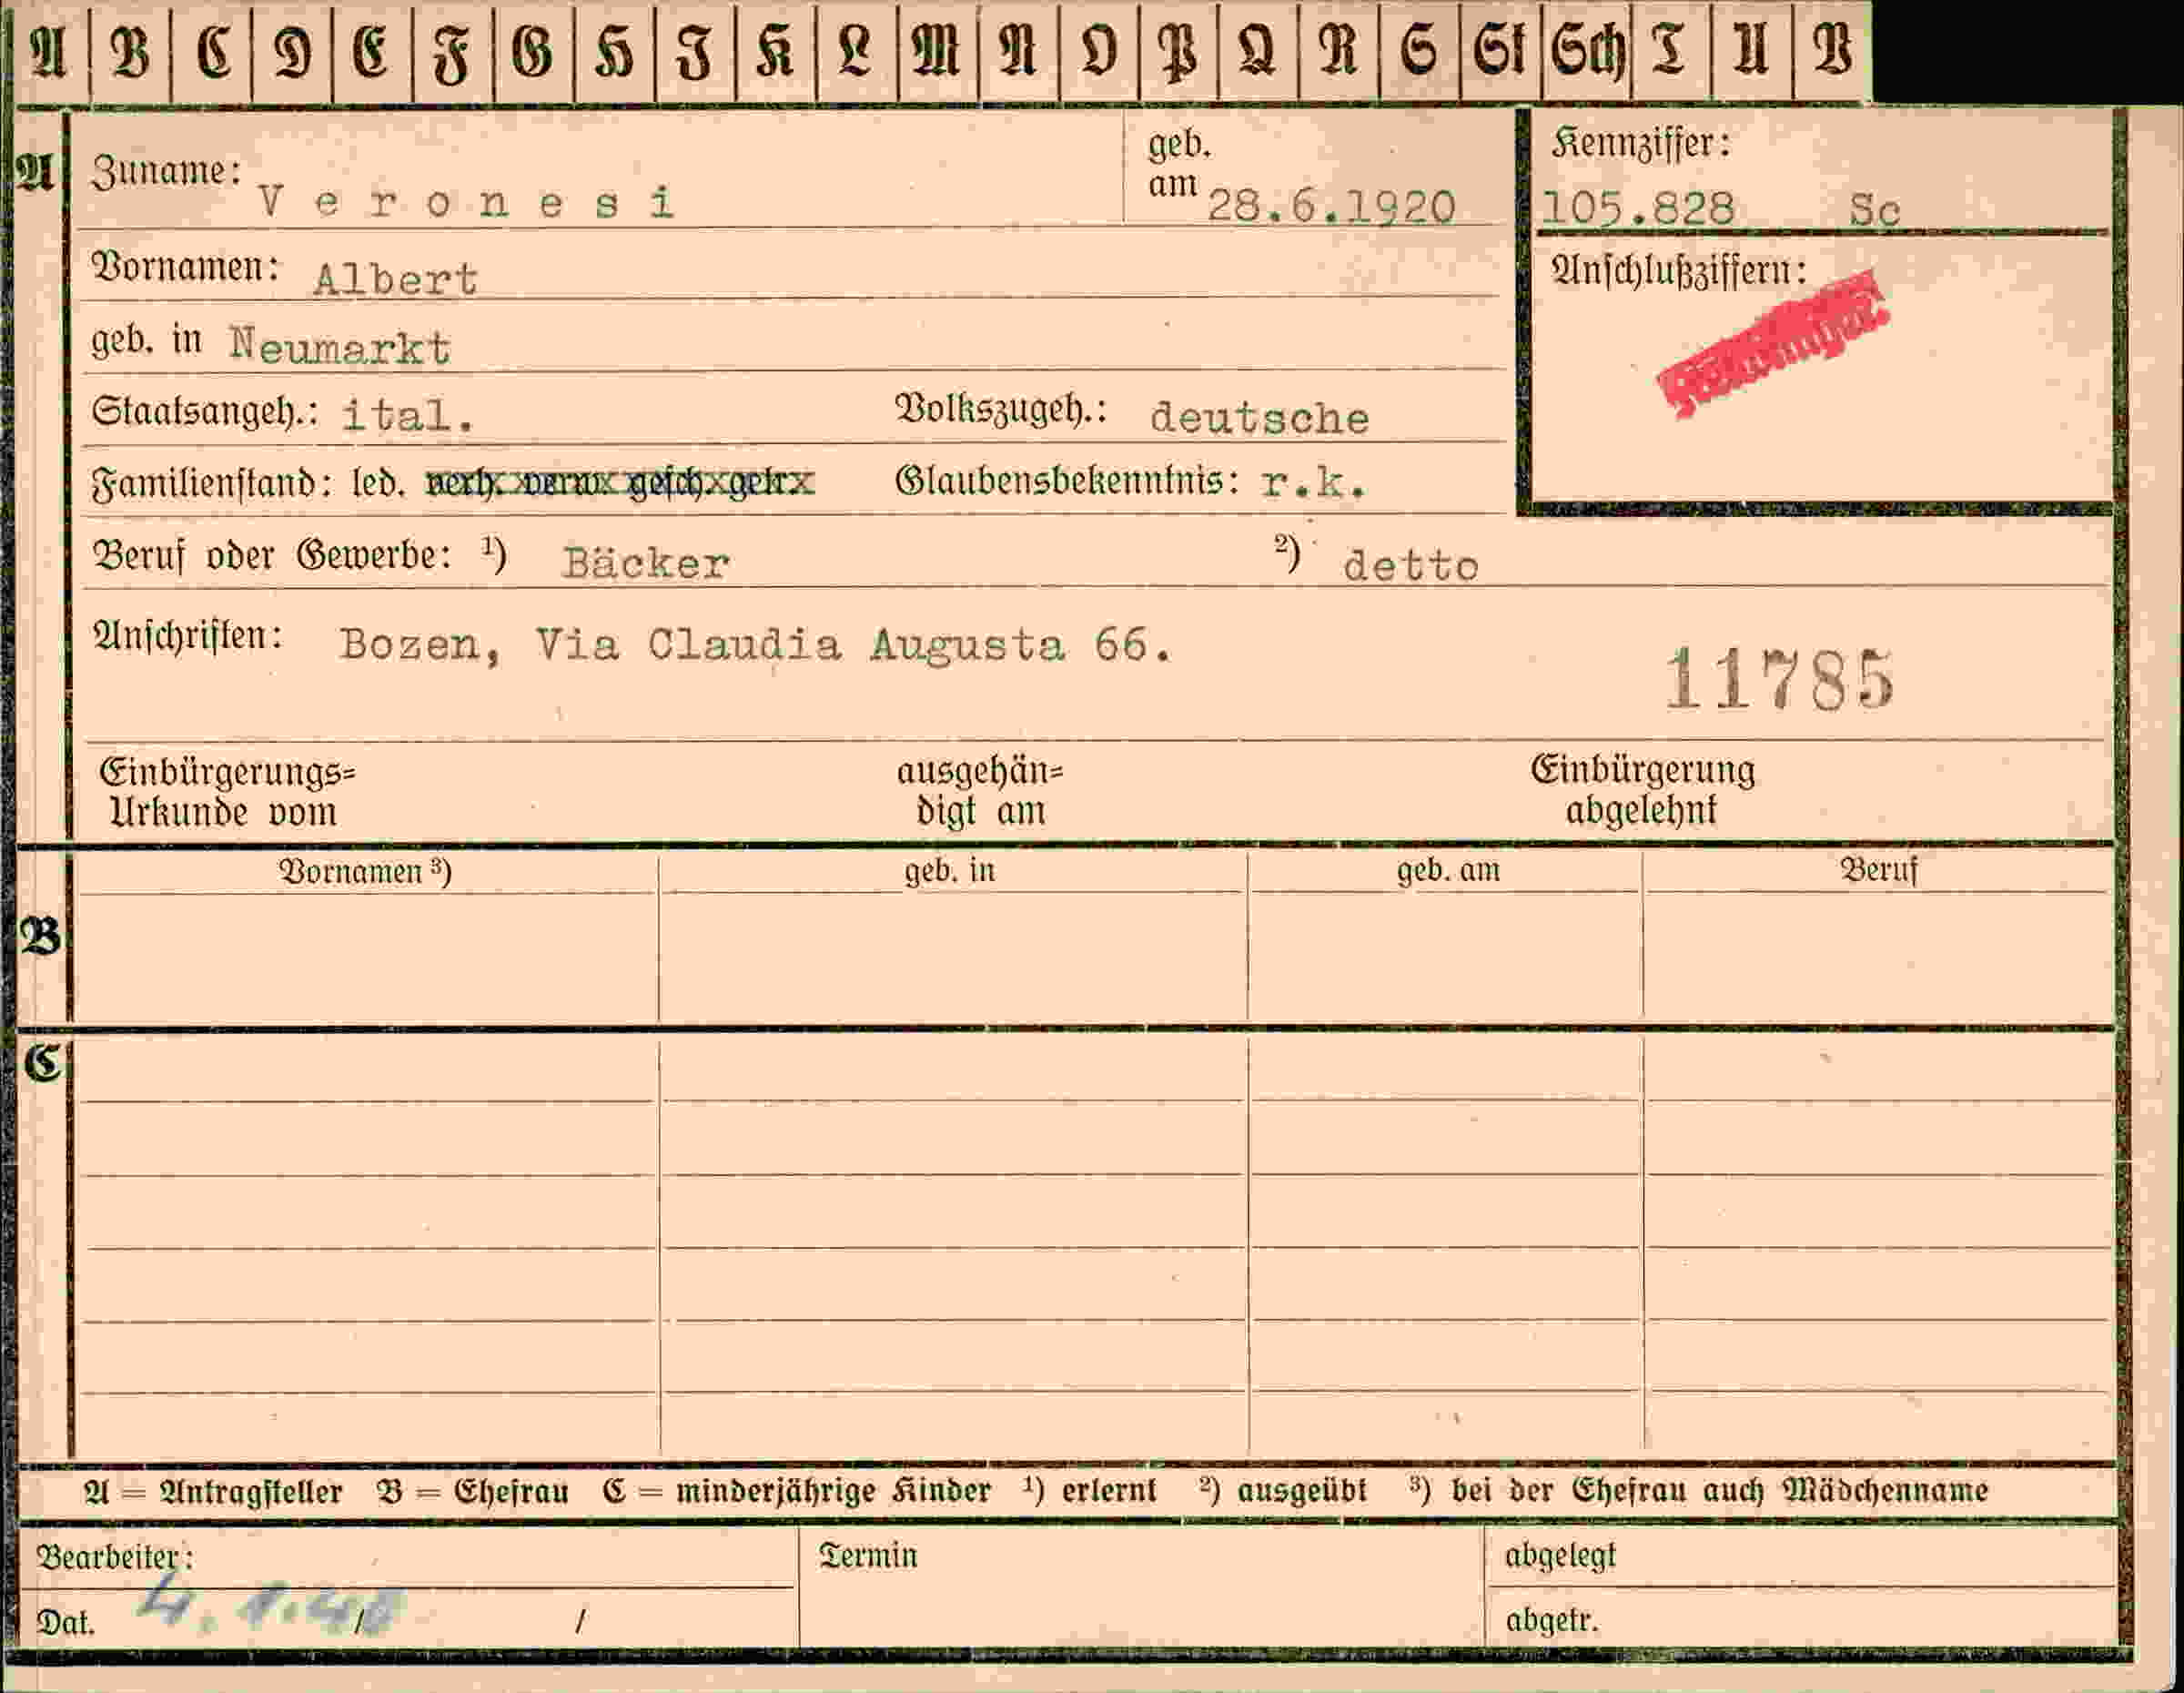 A B C D E F G H I K L M N O P Q R S St Sch T U V
A Zuname: Veronesi geb. am 28.6.1920
Kennziffer: 105.828 Sc
Vornamen: Albert
Anschlußziffern:
geb. in Neumarkt
Staatsangeh.: ital. Volkszugeh.: deutsche
Familienstand: led. verh. verw. gesch. getr. Glaubensbekenntnis: r.k.
Beruf oder Gewerbe: ¹) Bäcker ²) detto
Anschriften: Bozen, Via Claudia Augusta 66.
11785
Einbürgerungs=
Urkunde vom
ausgehän=
digt am
Einbürgerung
abgelehnt
Vornamen ³) geb. in geb. am Beruf
B
C
A = Antragsteller B = Ehefrau C = minderjährige Kinder ¹) erlernt ²) ausgeübt ³) bei der Ehefrau auch Mädchenname
Bearbeiter: Termin abgelegt
Dat. / / abgetr.